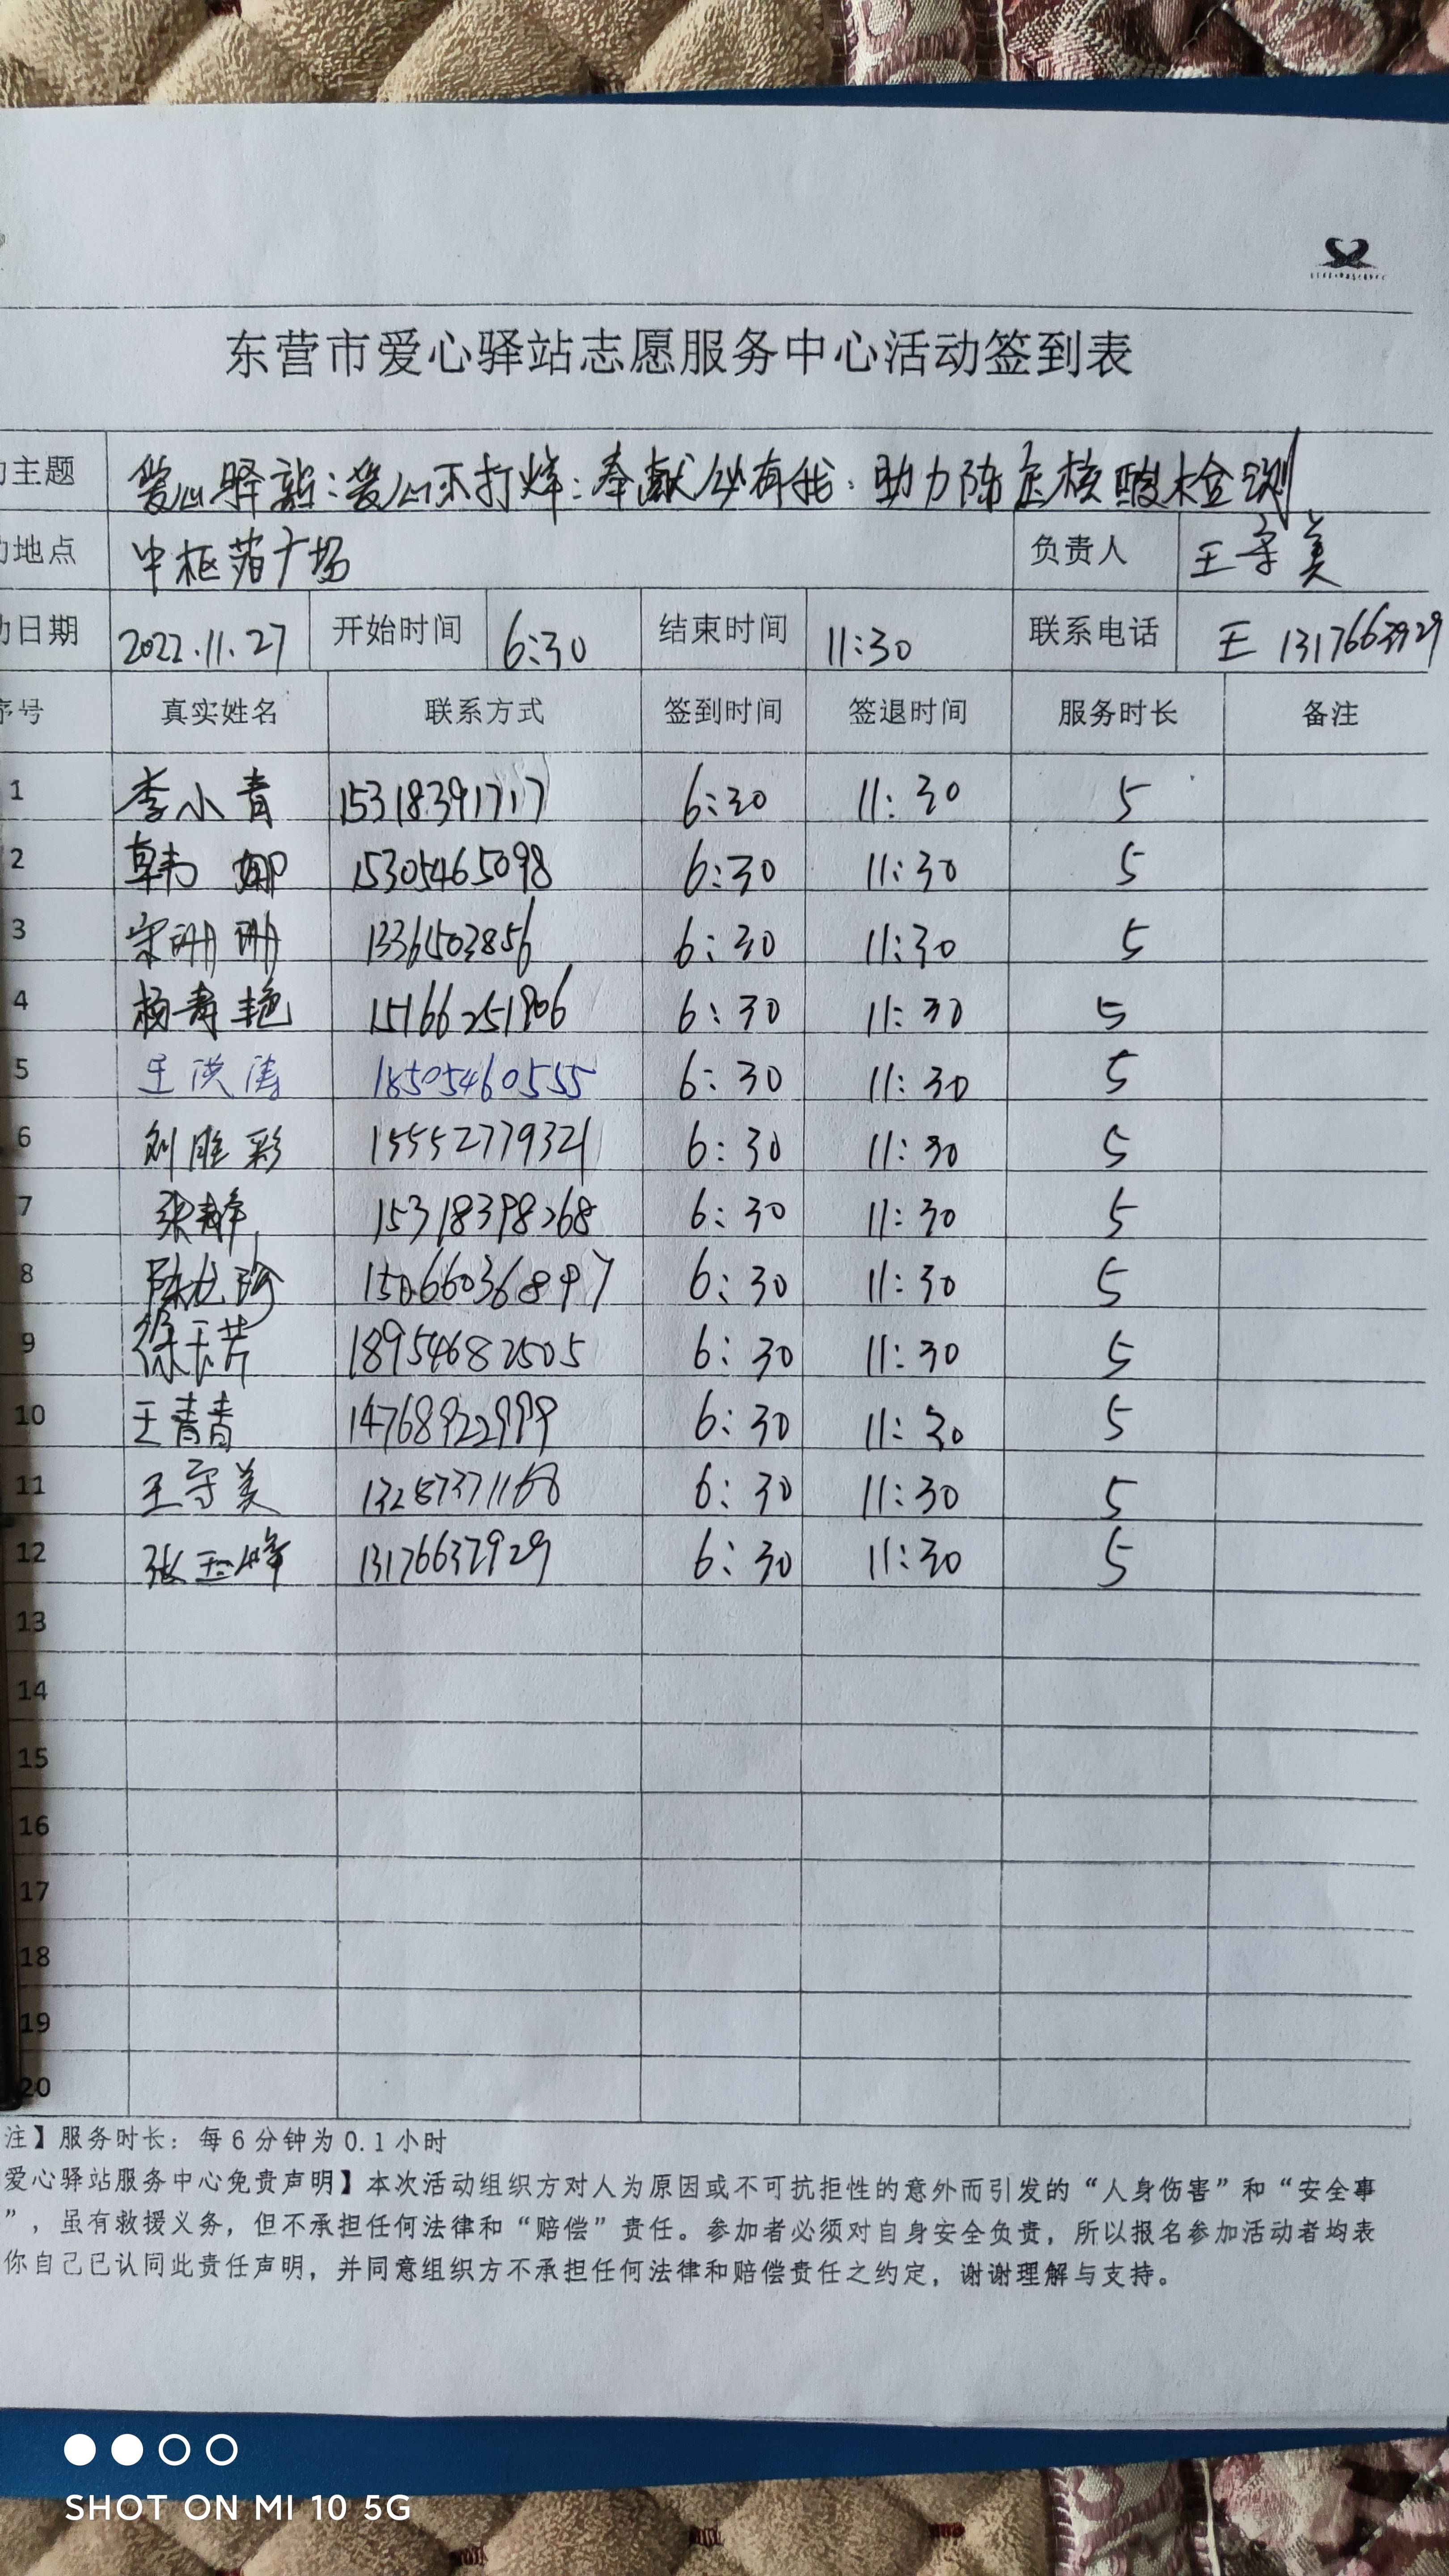 东营市爱心驿站志愿服务中心活动签到表
主题 爱心驿站:爱心不打烊:奉献必有我.助力陈庄核酸检测
地点 中枢苑广场 负责人 王守美
日期 2022.11.27 开始时间 6:30 结束时间 11:30 联系电话 王 13176637929
序号 真实姓名 联系方式 签到时间 签退时间 服务时长 备注
1 李小青 15318391717 6:30 11:30 5
2 韩娜 15305465098 6:30 11:30 5
3 宋珊珊 1336503856 6:30 11:30 5
4 杨青艳 15166251806 6:30 11:30 5
5 王洪涛 18505460555 6:30 11:30 5
6 刘胜彩 15552779321 6:30 11:30 5
7 张静 15318398268 6:30 11:30 5
8 15066036897 6:30 11:30 5
9 徐玉芹 18954682505 6:30 11:30 5
10 王青青 14768922999 6:30 11:30 5
11 王守美 13287371168 6:30 11:30 5
12 张玉峰 13176637929 6:30 11:30 5
13
14
15
16
17
18
19
20
注】服务时长：每6分钟为0.1小时
爱心驿站服务中心免责声明】本次活动组织方对人为原因或不可抗拒性的意外而引发的“人身伤害”和“安全事
”，虽有救援义务，但不承担任何法律和“赔偿”责任。参加者必须对自身安全负责，所以报名参加活动者均表
你自己已认同此责任声明，并同意组织方不承担任何法律和赔偿责任之约定，谢谢理解与支持。
SHOT ON MI 10 5G